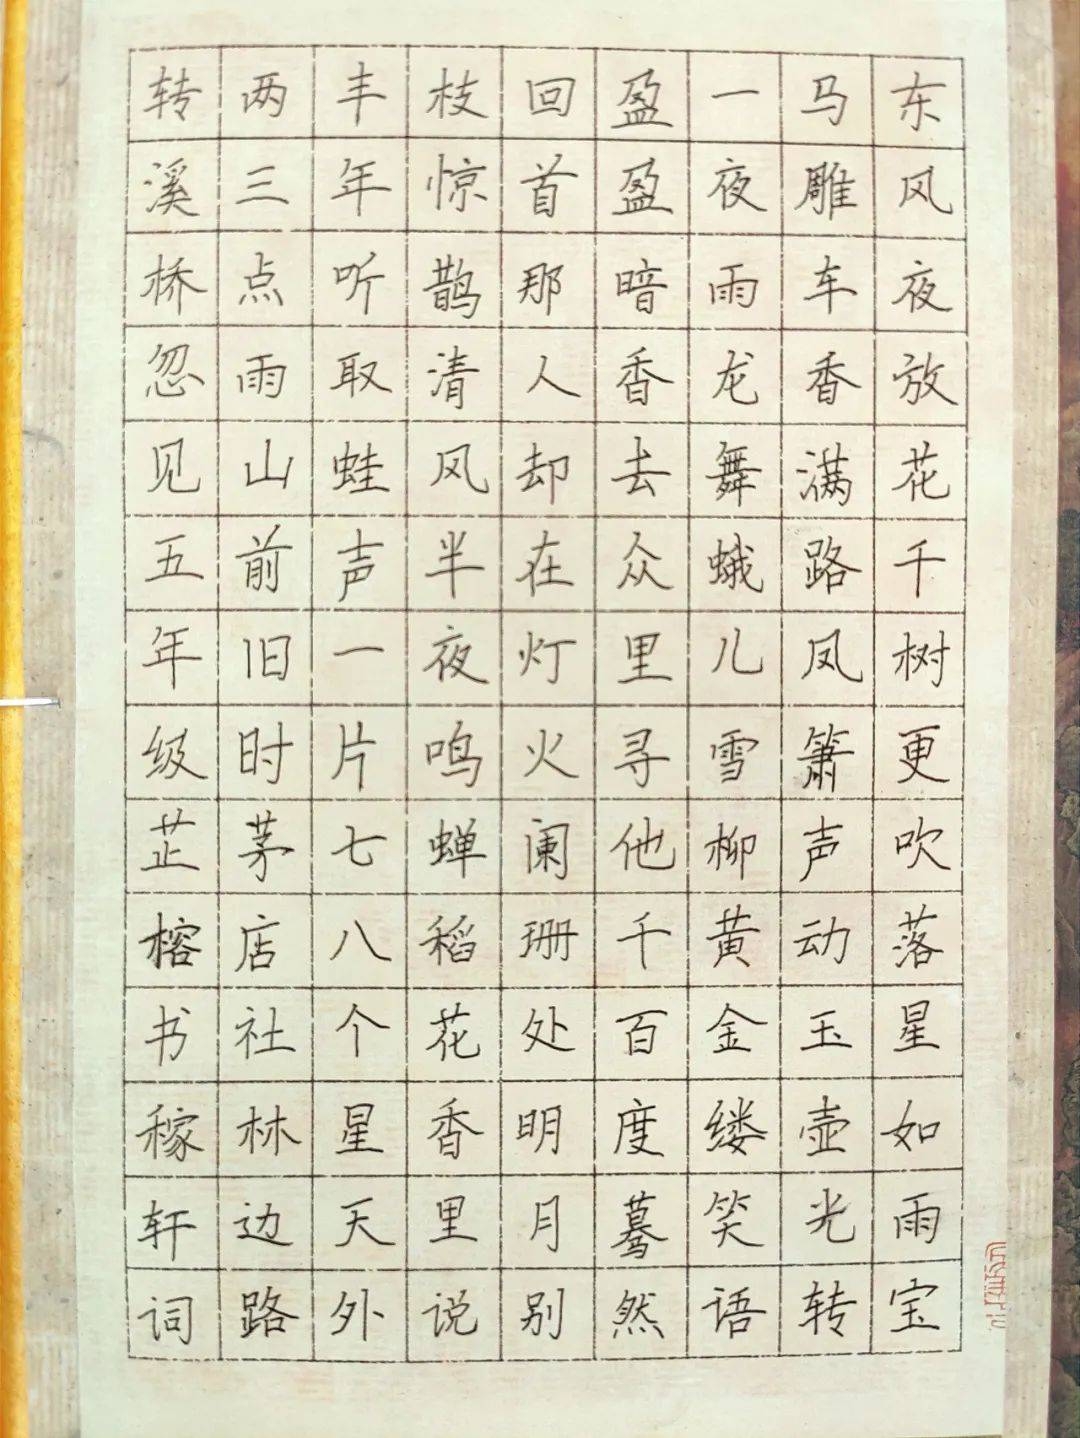 东风夜放花千树更吹落星如雨宝
马雕车香满路凤箫声动玉壶光转
一夜雨龙舞蛾儿雪柳黄金缕笑语
盈盈暗香去众里寻他千百度蓦然
回首那人却在灯火阑珊处明月别
枝惊鹊清风半夜鸣蝉稻花香里说
丰年听取蛙声一片七八个星天外
两三点雨山前旧时茅店社林边路
转溪桥忽见五年级芷榕书稼轩词